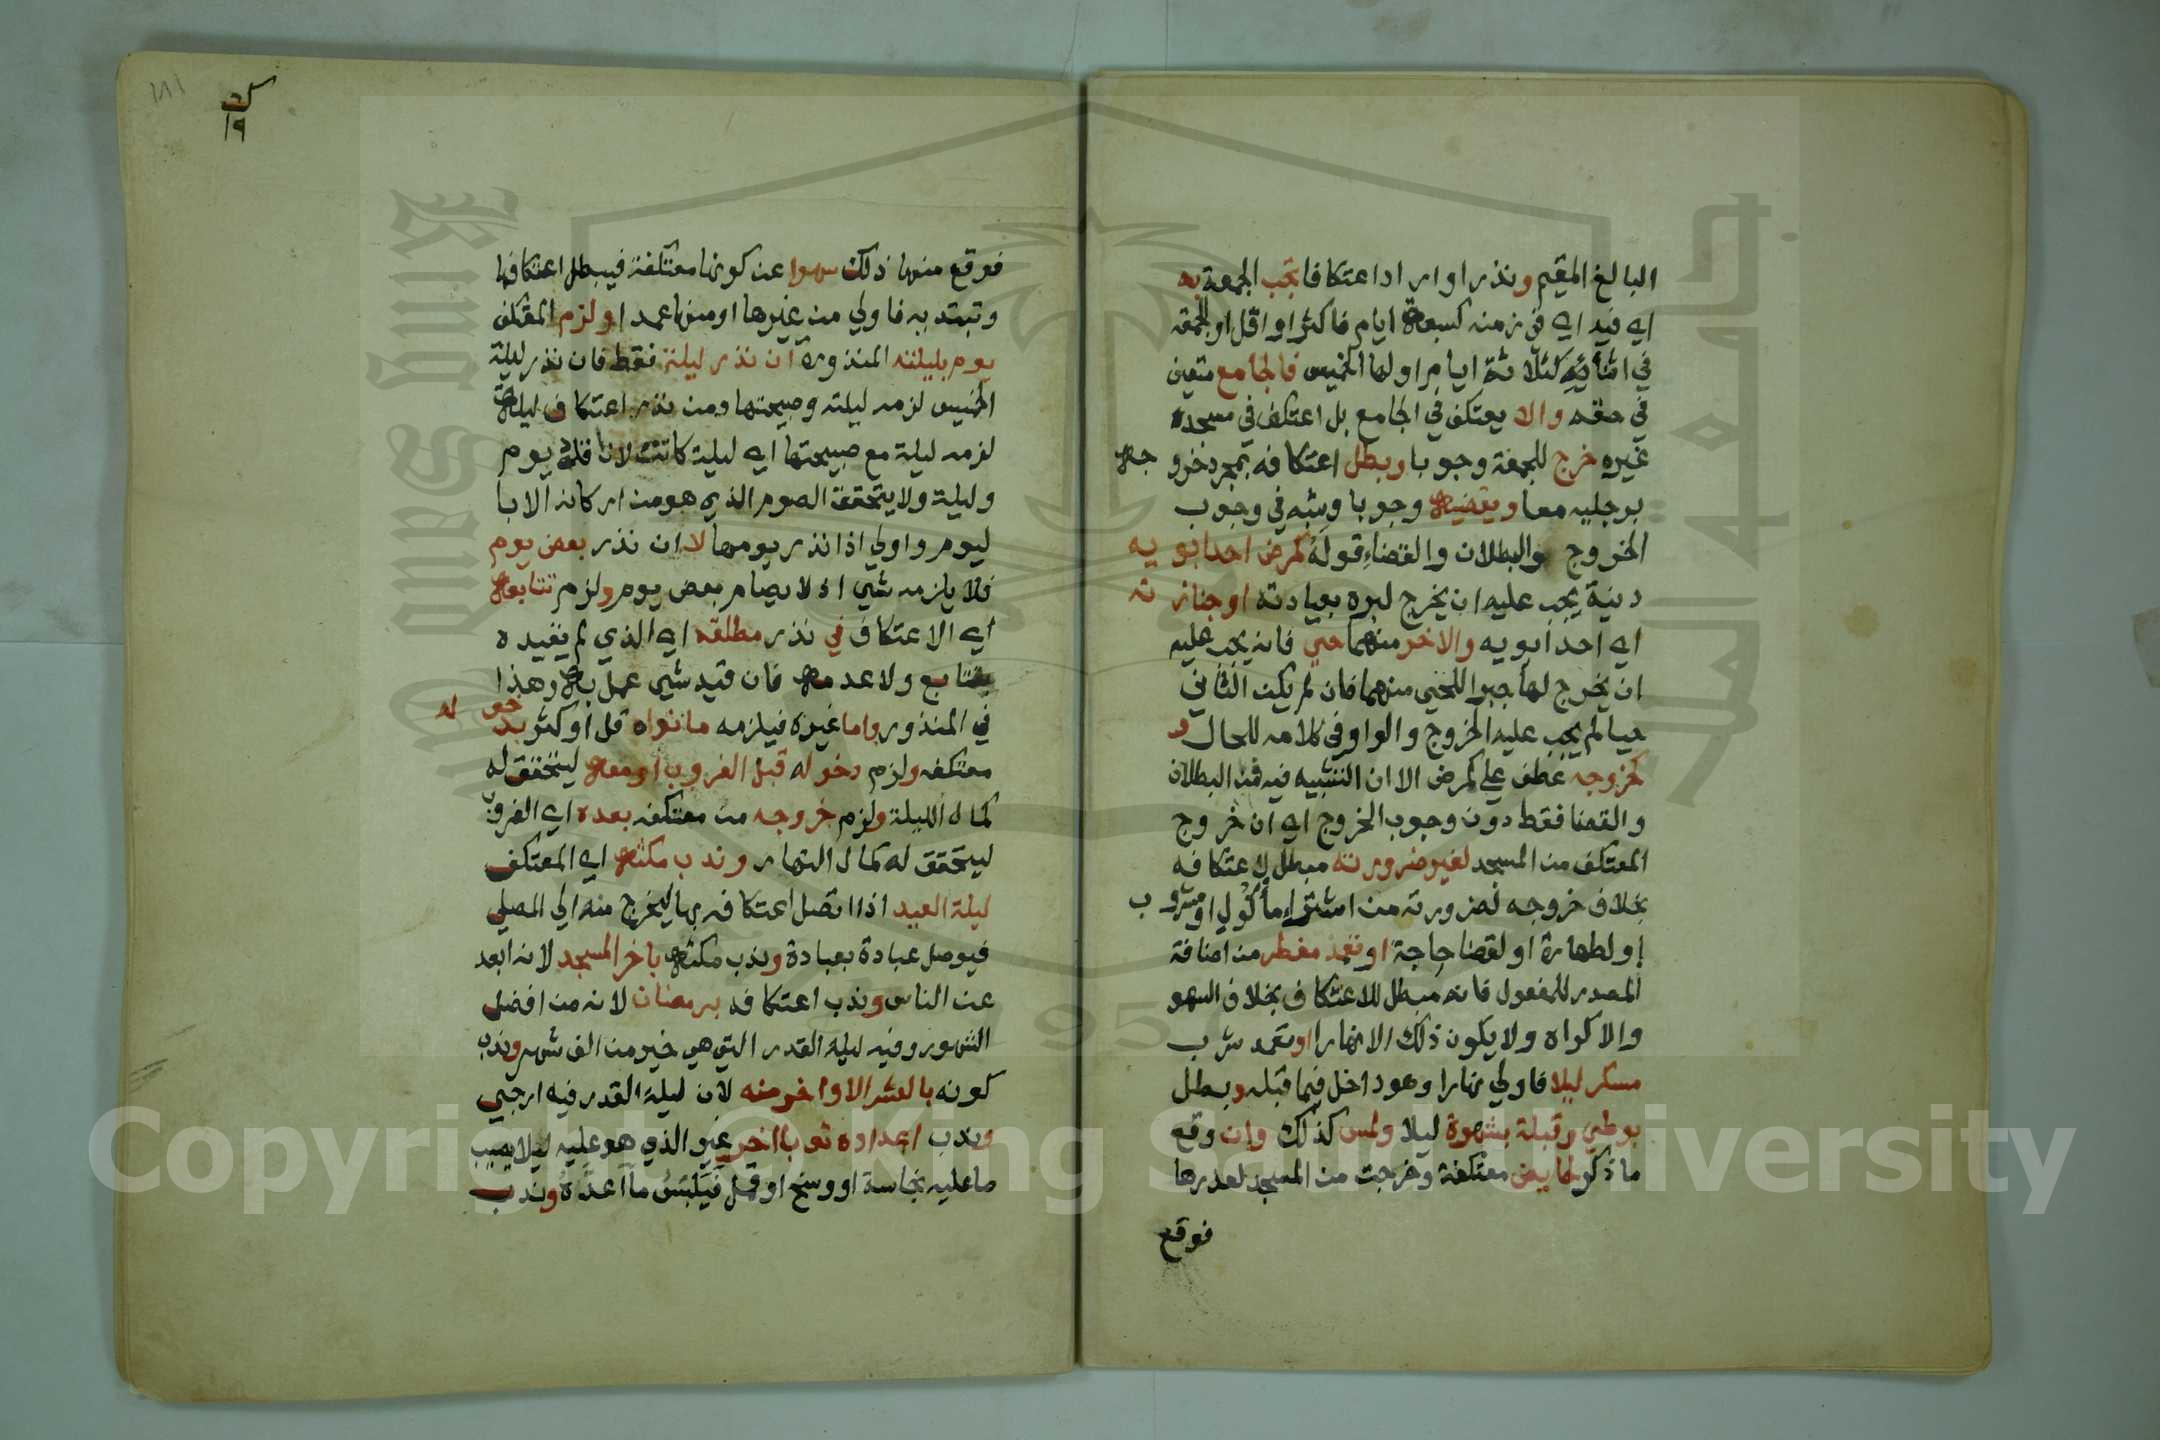 البالغ المقيم ونذر او اراد اعتكافا تجب الجمعة به
اي فيه اي في زمنه كسبعة ايام فاكثر او اقل او الجمعة
في اثنائه كثلاثة ايام اولها الخميس فالجامع متعين
في حقه والا يعتكف في الجامع بل اعتكف في مسجد
غيره خرج للجمعة وجوبا وبطل اعتكافه بمجرد خروجه
برجليه معا ويقضيه وجوبا وشبه في وجوب
الخروج والبطلان والقضاء قوله كمرض احد ابويه
دنية يجب عليه ان يخرج لبره بعيادته او جنازته
اي احد ابويه والاخر منهما حي فانه يجب عليه
ان يخرج لها جبرا للحي منهما فان لم يكن الثاني
حيا لم يجب عليه الخروج والواو في كلامه للحال و
كخروجه عطف علي كمرض الا ان التشبيه فيه في البطلان
والقضا فقط دون وجوب الخروج اي ان خروج
المعتكف من المسجد لغير ضرورته مبطل لاعتكافه
بخلاف خروجه لضرورته من اشتراء مأكول او مشروب
او لطهارة او لقضا حاجة او تعمد مفطر من اضافة
المصدر للمفعول فانه مبطل للاعتكاف بخلاف السهو
والاكراه ولا يكون ذلك الا نهارا او تعمد شرب
مسكر ليلا فاولي نهارا وهو داخل فيما قبله وبطل
بوطي وقبلة بشهوة ليلا ولمس كذلك وان وقع
ما ذكر لحايض معتكفة وخرجت من المسجد لعذرها
فوقع
١٨١
١٩
فوقع منها ذلك سهوا عن كونها معتكفة فيبطل اعتكافها
وتبتديه فاولي من غيرها او منها عمدا ولزم المعتكف
يوم بليلته المنذورة ان نذر ليلة فقط فان نذر ليلة
الخميس لزمه ليلته وصبيحتها ومن نذر اعتكاف ليلة
لزمه ليلة مع صبيحتها اي ليلة كانت لان اقله يوم
وليلة ولا يتحقق الصوم الذي هو من اركانه الا با
ليوم واولي اذا نذر يومها لا ان نذر بعض يوم
فلا يلزمه شي اذ لا يصام بعض يوم ولزم تتابعه
اي الاعتكاف في نذر مطلقه اي الذي لم يقيده
بتتابع ولا عدمه فان قيد بشي عمل به وهذا
في المنذور واما غيره فيلزمه ما نواه قل او كثر بدخوله
معتكفه ولزم دخوله قبل الغروب او معه ليتحقق له
كمال الليلة ولزم خروجه من معتكفه بعده اي الغروب
ليتحقق له كمال النهار وندب مكثه اي المعتكف
ليلة العيد اذا اتصل اعتكافه بها ليخرج منه الي المصلي
فيوصل عبادة بعبادة وندب مكثه باخر المسجد لانه ابعد
عن الناس وندب اعتكافه برمضان لانه من افضل
الشهور وفيه ليلة القدر التي هي خير من الف شهر وندب
كونه بالعشر الاواخر منه لان ليلة القدر فيه ارجي
وندب اعداده ثوبا اخر غير الذي هو عليه ليلا يصيب
ما عليه نجاسة او وسخ او قمل فَيَلْبَسُ ما اَعَدَّهُ وندب